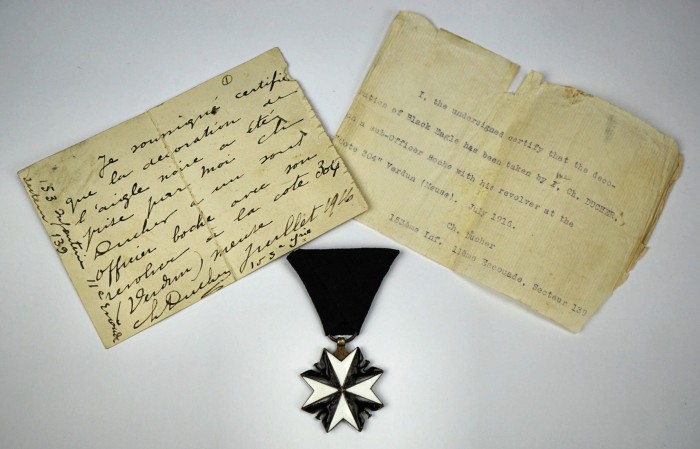 ①
Je soussigné certifie
que la décoration de
l'aigle noire a été
prise par moi Ch
Ducher a un sous
officier boche avec son
revolver a la cote 304
(Verdun) meuse
Ch Ducher Juillet 1916
153 - Inf
11 e Escouade
153
secteur 139
I, the undersigned certify that the deco-
ration of Black Eagle has been taken by I, Ch. DUCHER,
me
a sub-Officer Boche with his revolver at the
"Cote 304" Verdun (Meuse). July 1916.
Ch. Ducher
153ème Inf. 11ème Escouade, Secteur 139